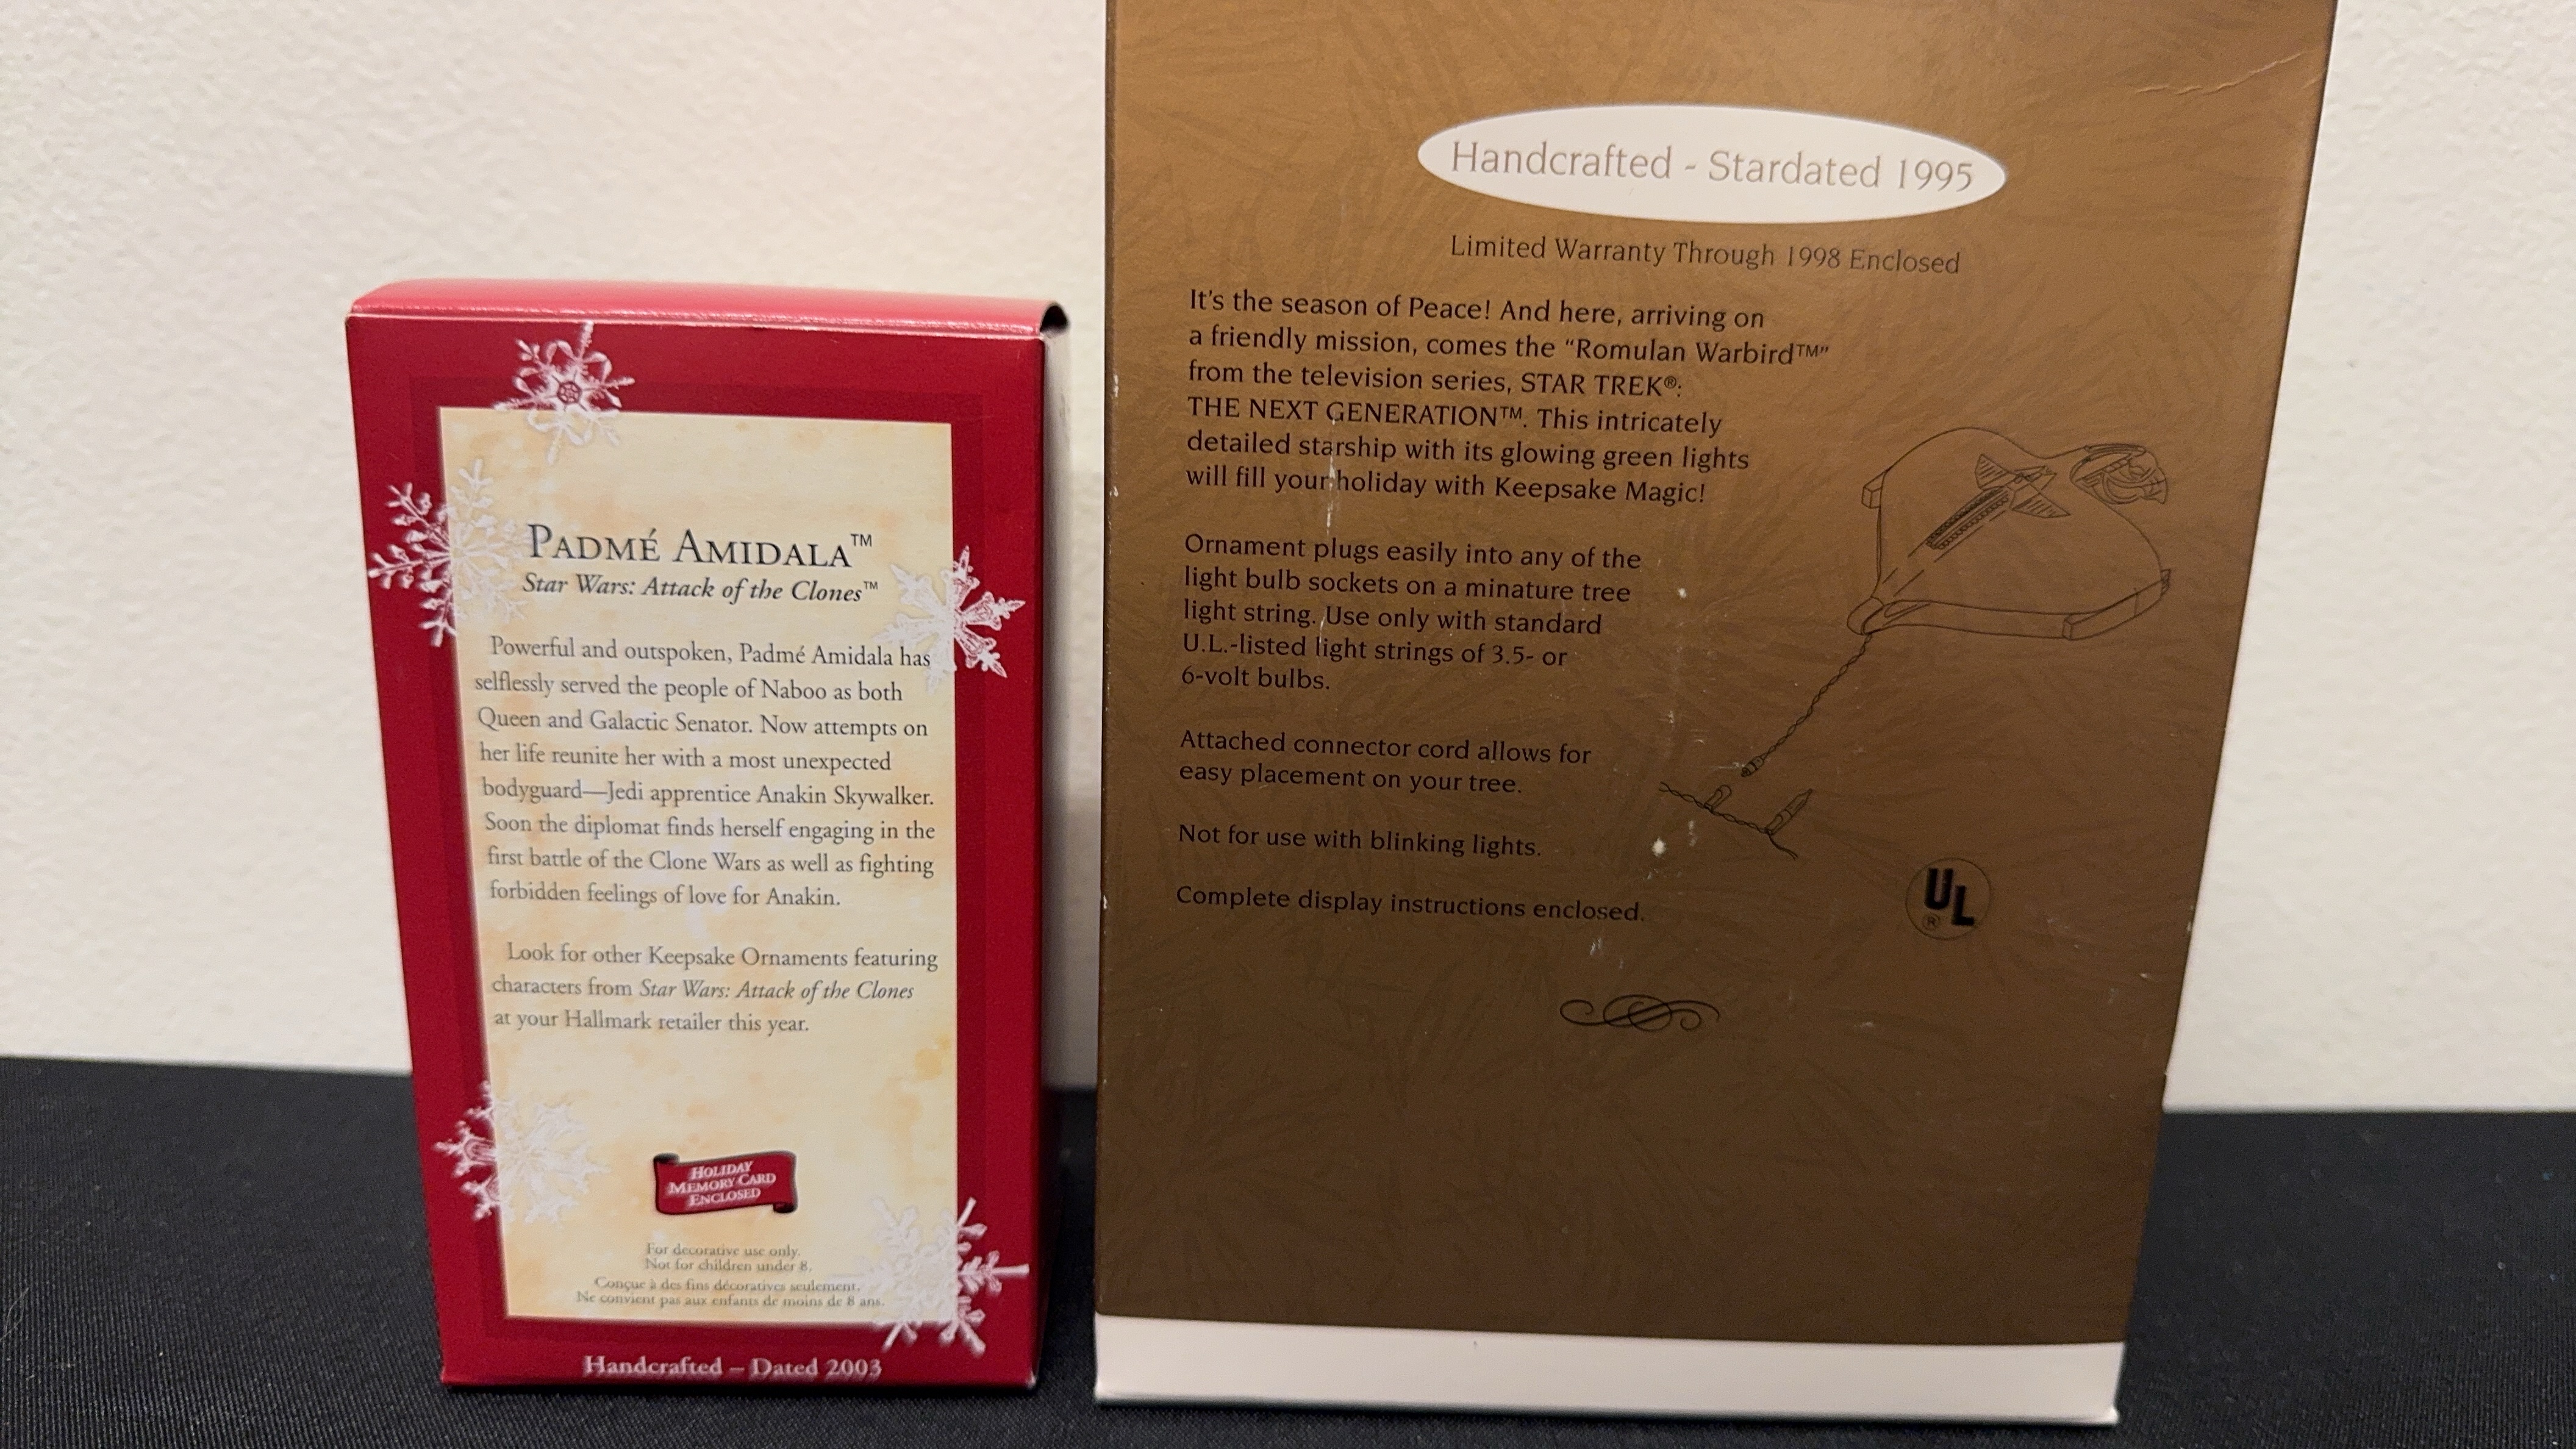 PADMÉ AMIDALA™
Star Wars: Attack of the Clones™
Powerful and outspoken, Padmé Amidala has
selflessly served the people of Naboo as both
Queen and Galactic Senator. Now attempts on
her life reunite her with a most unexpected
bodyguard—Jedi apprentice Anakin Skywalker.
Soon the diplomat finds herself engaging in the
first battle of the Clone Wars as well as fighting
forbidden feelings of love for Anakin.
Look for other Keepsake Ornaments featuring
characters from Star Wars: Attack of the Clones
at your Hallmark retailer this year.
HOLIDAY
MEMORY CARD
ENCLOSED
For decorative use only.
Not for children under 8.
Conçue à des fins décoratives seulement.
Ne convient pas aux enfants de moins de 8 ans.
Handcrafted – Dated 2003
Handcrafted - Stardated 1995
Limited Warranty Through 1998 Enclosed
It's the season of Peace! And here, arriving on
a friendly mission, comes the “Romulan Warbird™”
from the television series, STAR TREK®:
THE NEXT GENERATION™. This intricately
detailed starship with its glowing green lights
will fill your holiday with Keepsake Magic!
Ornament plugs easily into any of the
light bulb sockets on a minature tree
light string. Use only with standard
U.L.-listed light strings of 3.5- or
6-volt bulbs.
Attached connector cord allows for
easy placement on your tree.
Not for use with blinking lights.
Complete display instructions enclosed.
UL®